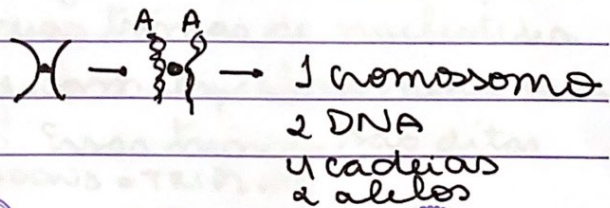 A A
1 cromossomo
2 DNA
4 cadeias
2 alelos